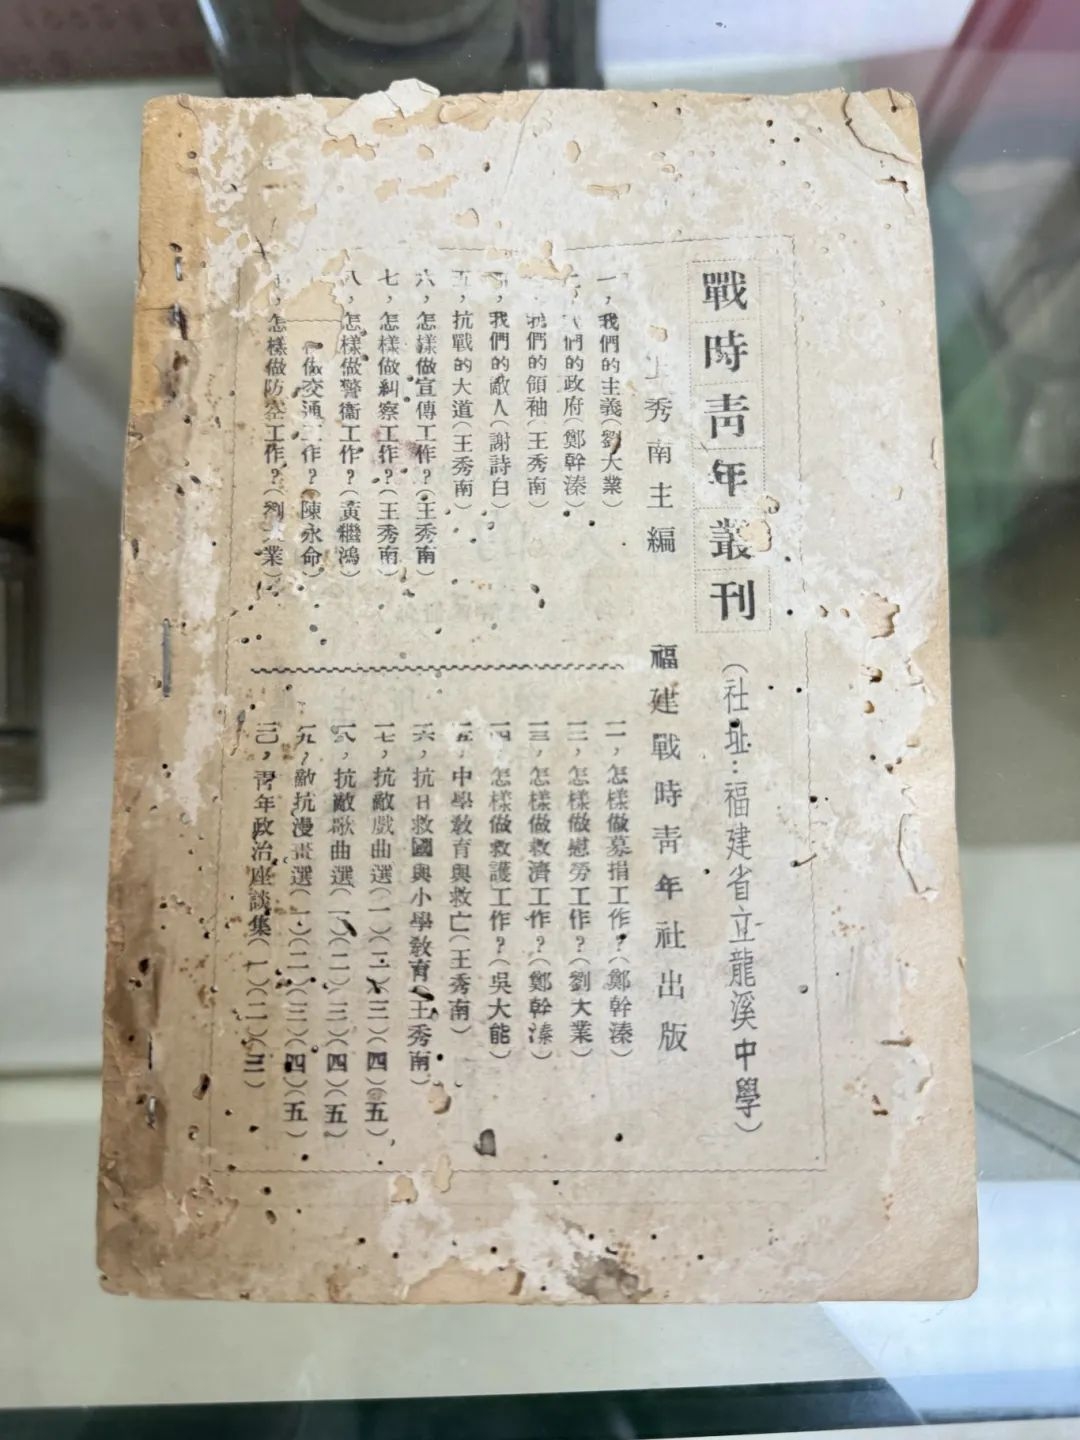 戰時青年叢刊
(社址:福建省立龍溪中學)
王秀南主編
福建戰時青年社出版
一,我們的主義(劉大業)
二,我們的政府(鄭幹溱)
我們的領袖(王秀南)
四,我們的敵人(謝詩白)
五,抗戰的大道(王秀南)
六,怎樣做宣傳工作?(王秀南)
七,怎樣做糾察工作?(王秀南)
八,怎樣做警衞工作?(黃繼鴻)
做交通工作?(陳永命)
怎樣做防空工作?(劉大業)
一一,怎樣做募捐工作?(鄭幹溱)
一二,怎樣做慰勞工作?(劉大業)
一三,怎樣做救濟工作?(鄭幹溱)
一四,怎樣做救護工作?(吳大能)
一五,中學教育與救亡(王秀南)
一六,抗日救國與小學教育(王秀南)
一七,抗敵戲曲選(一)(二)(三)(四)(五)
一八,抗敵歌曲選(一)(二)(三)(四)(五)
一九,敵抗漫畫選(一)(二)(三)(四)(五)
二〇,青年政治座談集(一)(二)(三)